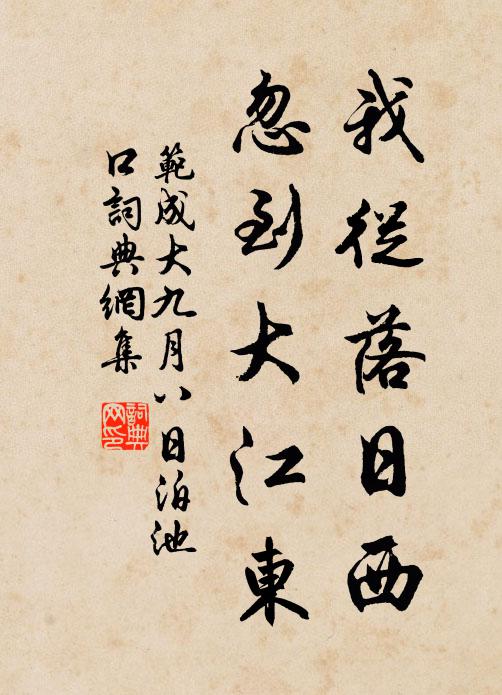 我從落日西
忽到大江東
範成大九月八日泊池
口詞典網集
詞典
网印